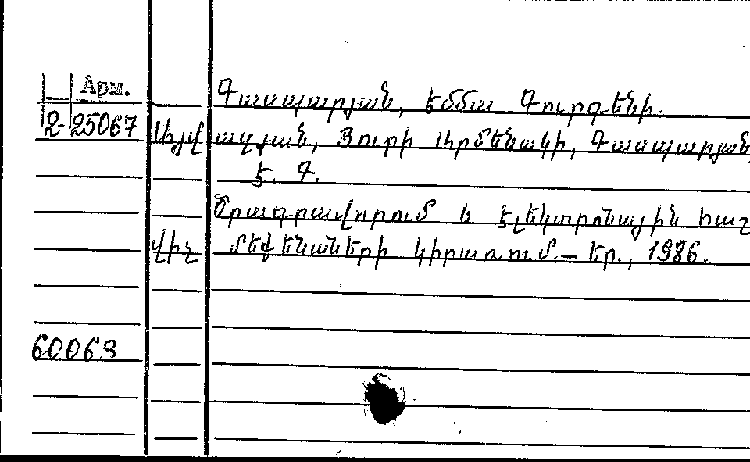 Арм.
Գասպարյան, Էմմա Գուրգենի.
2-25067 Այվազյան, Յուրի Արմենակի, Գասպարյան,
Է. Գ.
Ծրագրավորում և էլեկտրոնային հաշ
վիչ մեքենաների կիրառում.— Եր., 1986.
60063